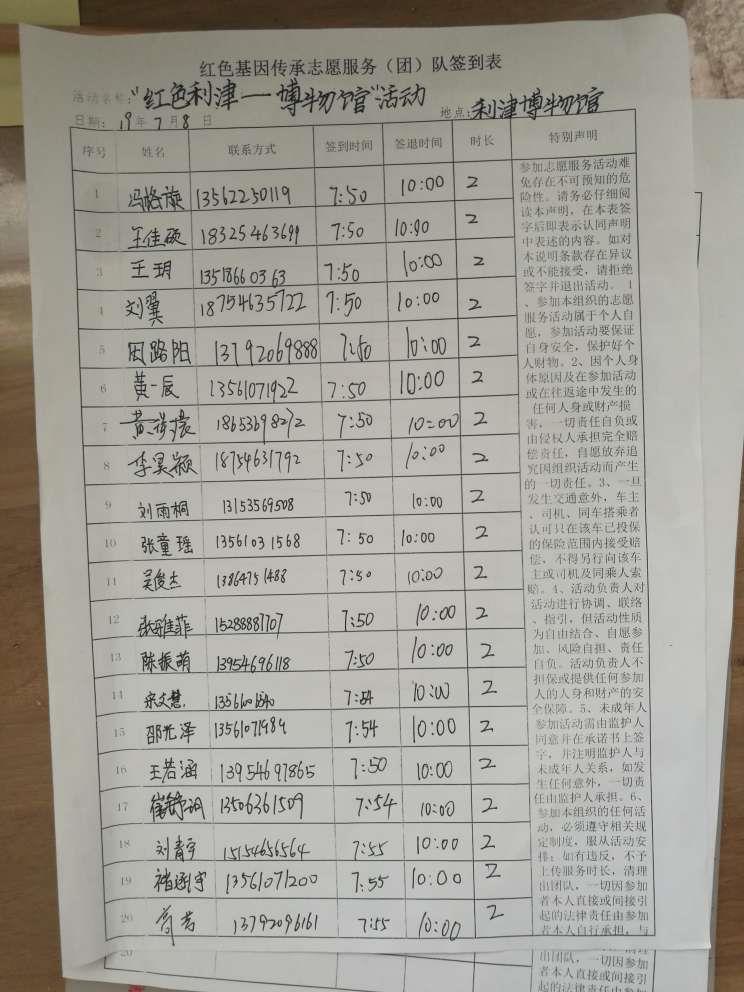 红色基因传承志愿服务（团）队签到表
活动名称："红色利津—博物馆"活动
日期：19年7月8日 地点：利津博物馆
序号 姓名 联系方式 签到时间 签退时间 时长 特别声明
1 冯格旋 13562250119 7:50 10:00 2
2 王佳硕 18325463699 7:50 10:00 2
3 王玥 13518660363 7:50 10:00 2
4 刘翼 18754635722 7:50 10:00 2
5 田路阳 13792069888 7:50 10:00 2
6 黄一辰 13561071922 7:50 10:00 2
7 18653698272 7:50 10:00 2
8 李昊颖 18754631792 7:50 10:00 2
9 刘雨桐 13153569508 7:50 10:00 2
10 张童瑶 13561031568 7:50 10:00 2
11 吴俊杰 13864751488 7:50 10:00 2
12 张雅菲 15288887707 7:50 10:00 2
13 陈振萌 13954696118 7:50 10:00 2
14 宋文慧 7:54 10:00 2
15 邵光泽 13561071989 7:54 10:00 2
16 王若涵 13954697865 7:50 10:00 2
17 13506361509 7:54 10:00 2
18 刘青宇 15154656564 7:55 10:00 2
19 褚逐宇 13561071200 7:55 10:00 2
20 13792096161 7:55 10:00 2
参加志愿服务活动难
免存在不可预知的危
险性。请务必仔细阅
读本声明，在本表签
字后即表示认同声明
中表述的内容。如对
本说明条款存在异议
或不能接受，请拒绝
签字并退出活动。 1
、参加本组织的志愿
服务活动属于个人自
愿，参加活动要保证
自身安全，保护好个
人财物。2、因个人身
体原因及在参加活动
或在往返途中发生的
任何人身或财产损
害，一切责任自负或
由侵权人承担完全赔
偿责任，自愿放弃追
究因组织活动而产生
的一切责任。3、一旦
发生交通意外，车主
、司机、同车搭乘者
认可只在该车已投保
的保险范围内接受赔
偿，不得另行向该车
主或司机及同乘人索
赔。4、活动负责人对
活动进行协调、联络
、指引，但活动性质
为自由结合、自愿参
加、风险自担、责任
自负。活动负责人不
担保或提供任何参加
人的人身和财产的安
全保障。5、未成年人
参加活动需由监护人
同意并在承诺书上签
字，并注明监护人与
未成年人关系，如发
生任何意外，一切责
任由监护人承担。6、
参加本组织的任何活
动，必须遵守相关规
定制度，服从活动安
排；如有违反，不予
上传服务时长，清理
出团队，一切因参加
者本人直接或间接引
起的法律责任由参加
者本人自行承担，与
20
出团队，一切因参加
者本人直接或间接引
起的法律责任由参加